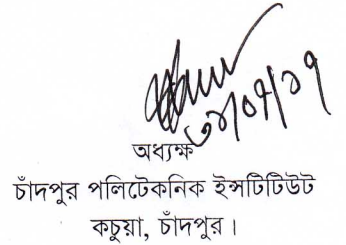 অধ্যক্ষ
চাঁদপুর পলিটেকনিক ইন্সটিটিউট
কচুয়া, চাঁদপুর।